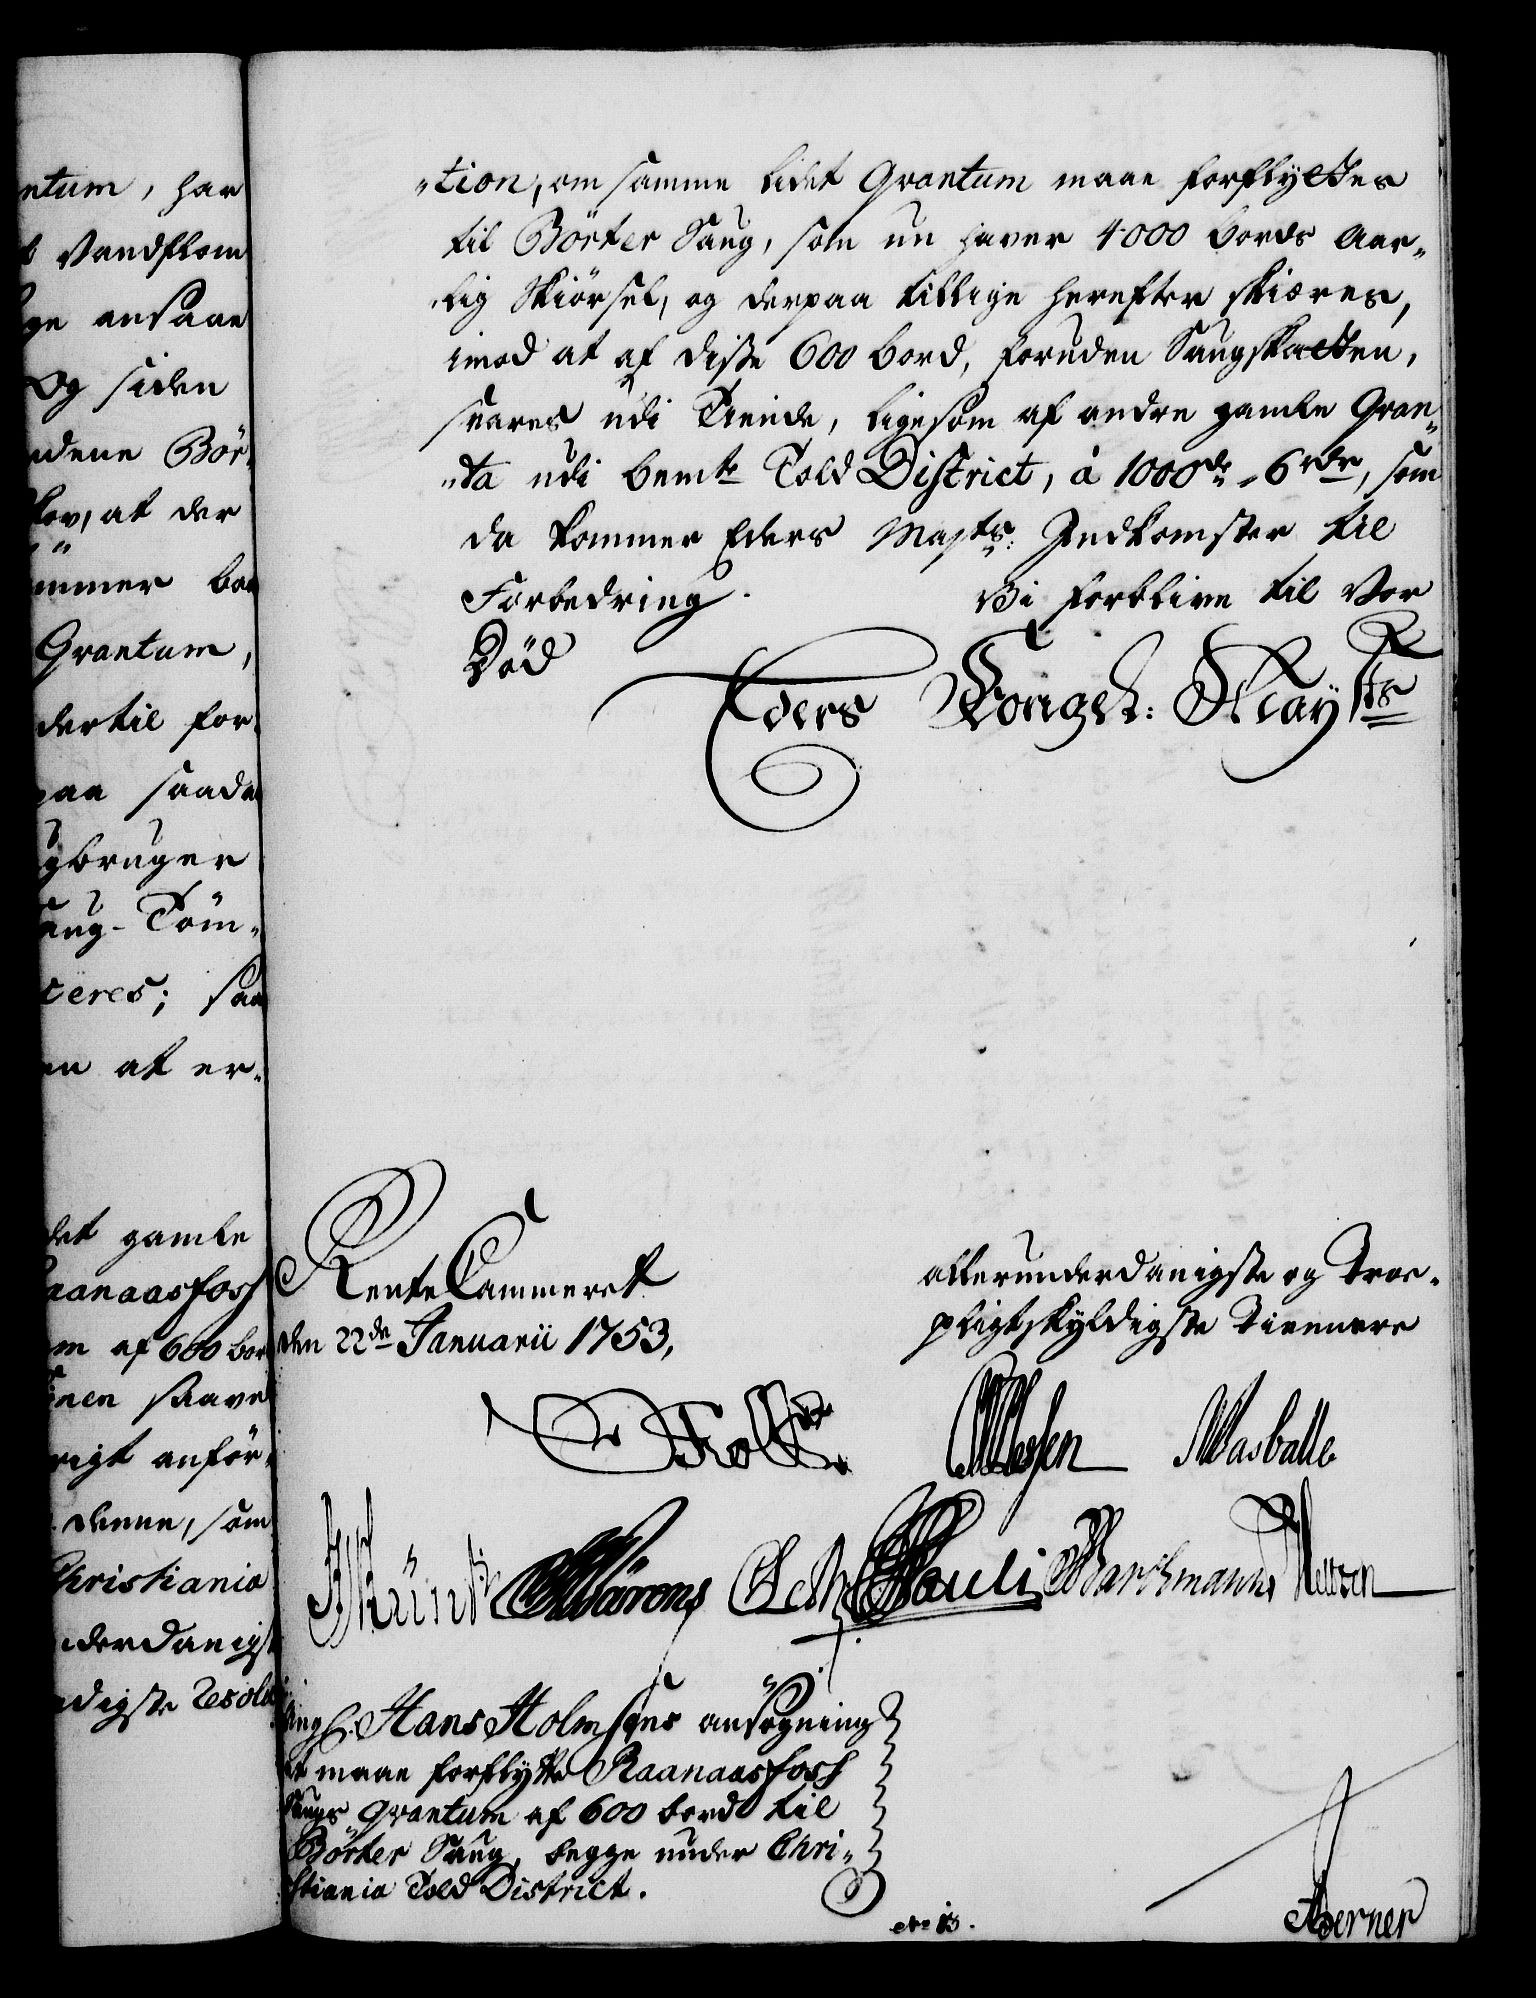 ntum, har
Vandflom
ge ansaae
Og siden
dene Bör-
lov, at der
mmer bort
Qvantum,
dertil for-
paa saadan
gbruger
aug-Töm-
teres; saa
en at er-
det gamle
Raanaasfoss
m af 600 bord
nen saavel
rigt anför-
denne, som
Christiania
nderdanigst
adigste Resolu-
"tion, om samme lidet Qvantum maae forflyttes
til Börter Saug, som nu haver 4000 bords Aar-
lig Skiörsel, og derpaa tillige herefter skiæres,
imod at af disse 600 bord, foruden Saugskatten,
svares udi Tiende, ligesom af andre gamle Qvan-
"ta udi bemte Told District, à 1000de 6 rdr, som
da kommer Eders Mayts: Indkomster til
Forbedring. Vi forblive til Vor
Död
Eders Kongel: Mayts
Rente Cammeret
den 22de Januarii 1753,
allerunderdanigste og Troe-
pligtskyldigste Tienere
Holk
Wessen Masballe
Pauli Barchmann
Hans Holmsens ansögning
at maae forflytte Raanaasfoss
Saugs Qvantum af 600 bord til
Börter Saug, begge under Chri-
stiania Told District.
No 13.
Berner